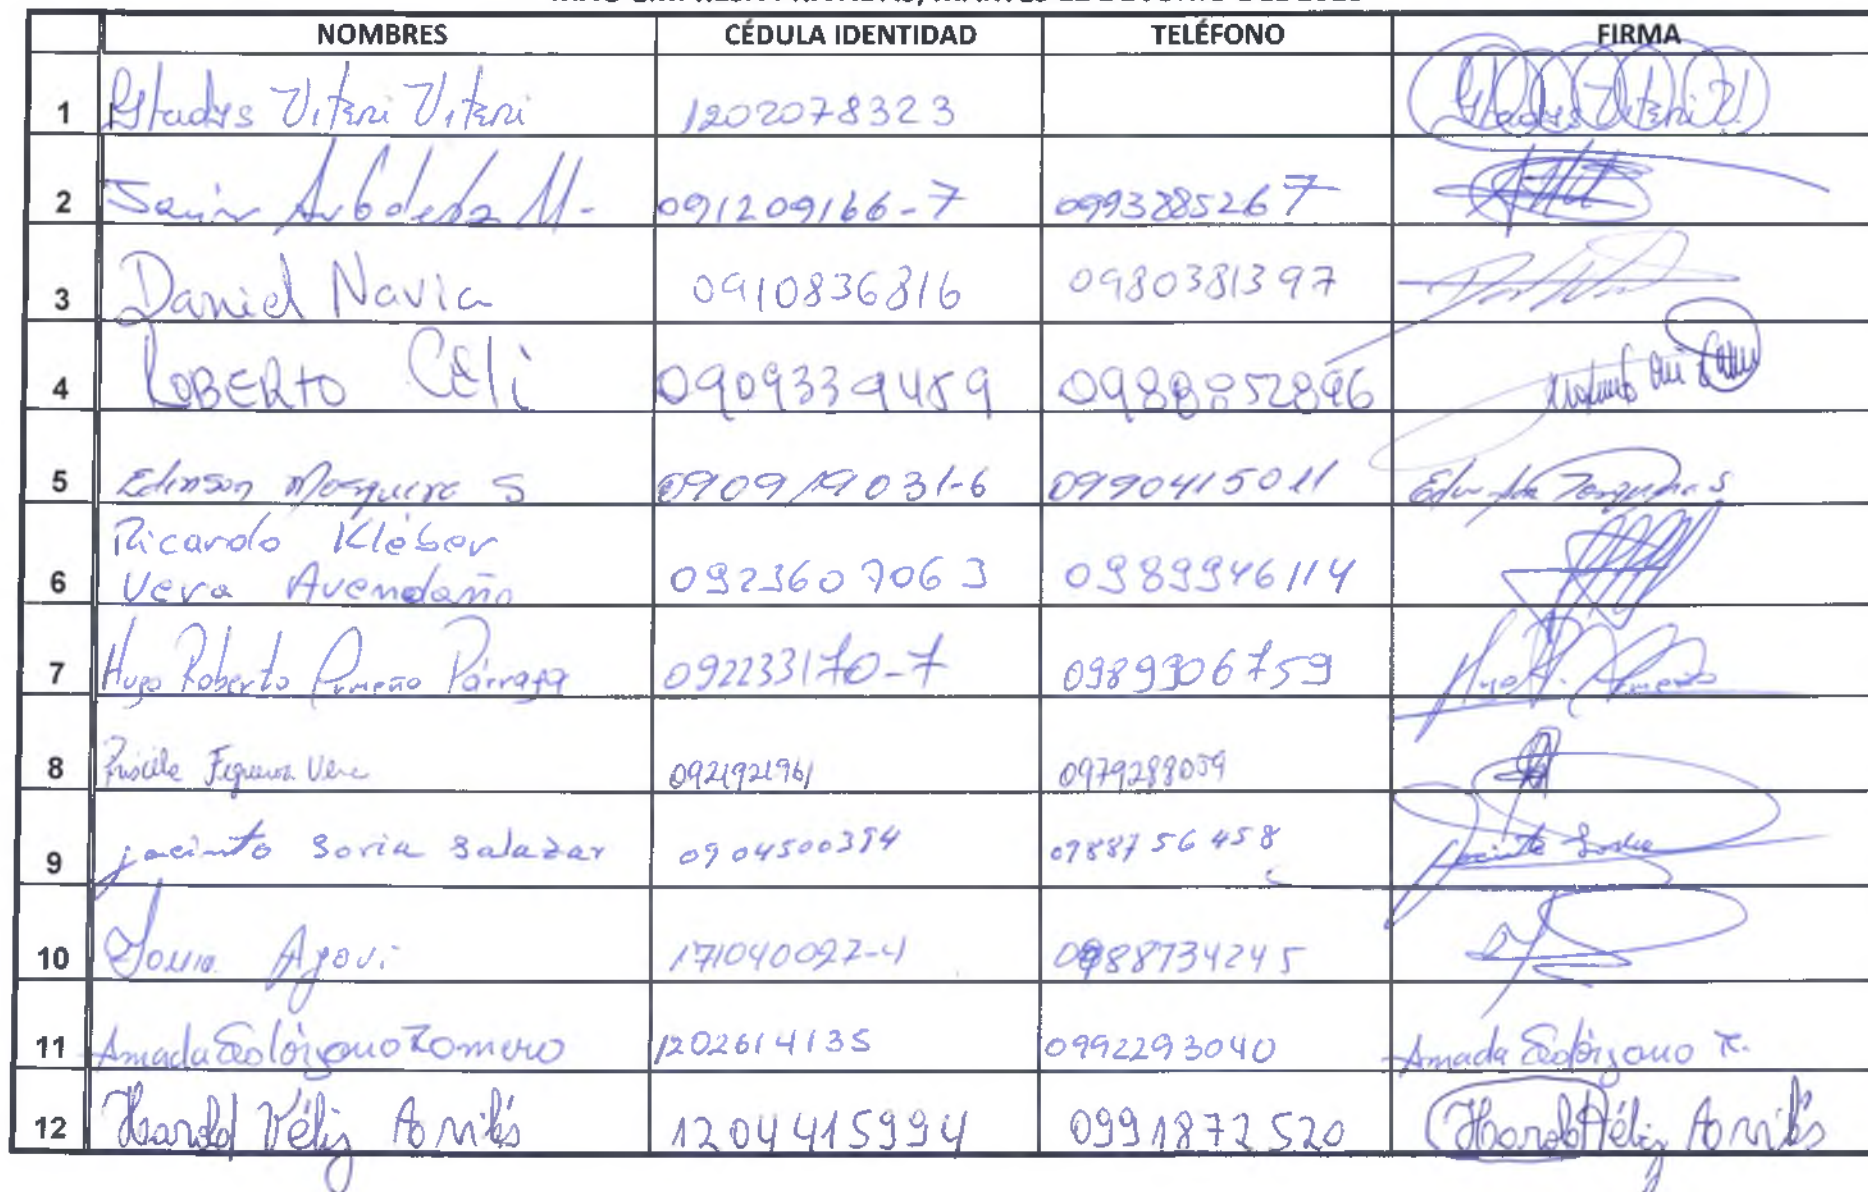 NOMBRES CÉDULA IDENTIDAD TELÉFONO FIRMA
1 Gladys Viteri Viteri 1202078323 Gladys Viteri V.
2 Arboleda M- 091209166-7 0993285267
3 Daniel Navia 0910836816 0980381397
4 ROBERTO Celi 0909339489
5 Edinson Mosquera S 090919031-6 0990415011
Ricardo Kléber
6 Vera Avendaño 0923607063 0989946114
7 Hugo Roberto Pimeño Párraga 092233170-7 0989906759
8 Figueroa Vera 0921921961 0979289059
9 jacinto Soria Salazar 0904500394 0988756458 Jacinto Soria
10 Ayovi 171040092-4 0988734245
11 Amada Solórzano Romero 1202614135 0992293040 Amada Solórzano R.
12 Harold Véliz 1204415994 0991872520 Harold Véliz